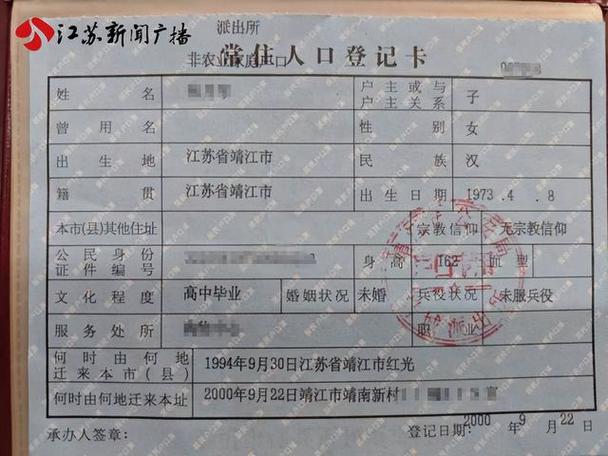 江苏新闻广播
派出所
常住人口登记卡
非农业家庭户口
姓名 户主或与户主关系 子
曾用名 性别 女
出生地 江苏省靖江市 民族 汉
籍贯 江苏省靖江市 出生日期 1973.4.8
本市(县)其他住址 宗教信仰 无宗教信仰
公民身份证件编号 身高 162 血型
文化程度 高中毕业 婚姻状况 未婚 兵役状况 未服兵役
服务处所 职业
何时由何地迁来本市(县) 1994年9月30日江苏省靖江市红光
何时由何地迁来本址 2000年9月22日靖江市靖南新村 室
承办人签章: 登记日期:2000年9月22日